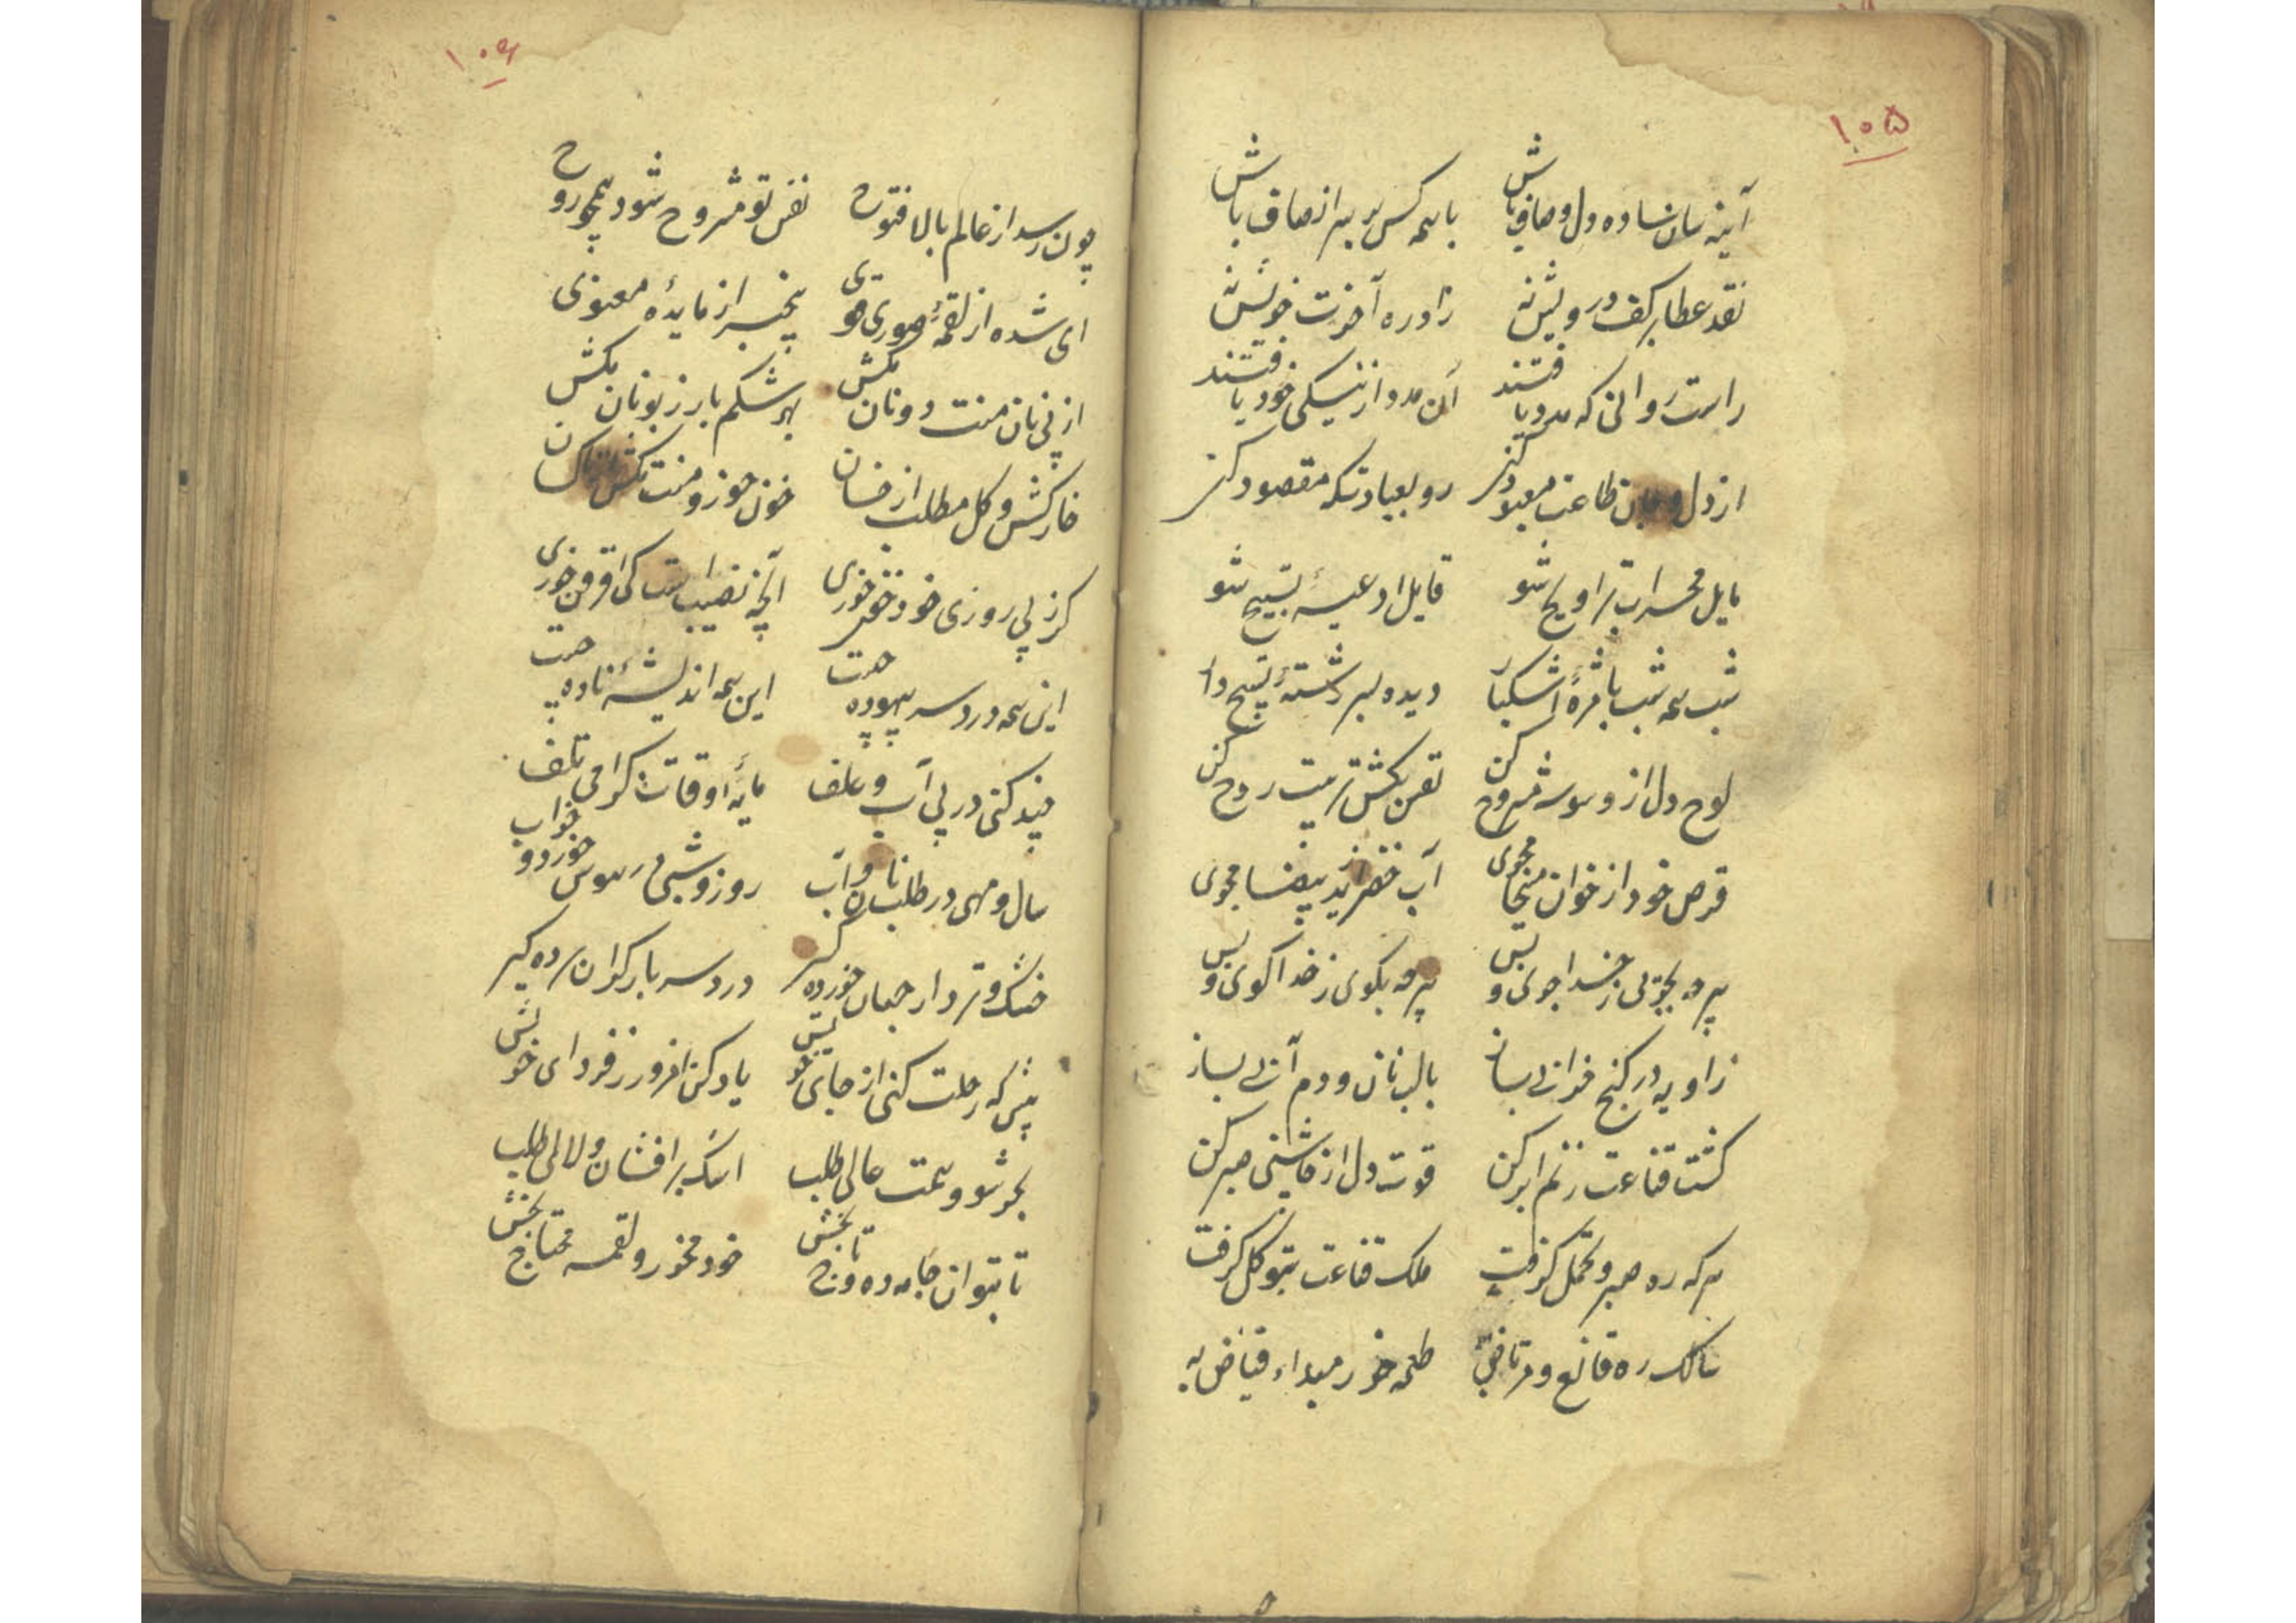 ۱۰۵
آینه سان ساده دل و صاف باش با همه کس بر سر انصاف باش
نقد عطا بر کف درویش نه زاد ره آخرت خویش نه
راست روانی که مدد یافتند آن مدد از نیکی خود یافتند
از دل و جان طاعت معبود کن رو بعبادتکه مقصود کن
مایل محراب تراویح شو قایل ادعیهٔ تسبیح شو
شب همه شب با مژهٔ اشکبار دیده بسر رشتهٔ تسبیح دار
لوح دل از وسوسه مشروح کن نفس بکش تربیت روح کن
قرص خود از خوان مسیحا مجوی آب خضر از ید بیضا مجوی
هرچه بجویی ز خدا جوی و بس هرچه بگوی ز خدا کوی و بس
زاویه در کنج خرابی بساز با لب نان و دم آبی بساز
کشت قناعت ز نم ابر کن قوت دل از چاشنی صبر کن
هر که ره صبر و تحمل گرفت ملک قناعت بتوکل گرفت
سالک ره قانع و مرتاض به طعمه خور مبداء فیاض به
۱۰۶
چون رسد از عالم بالا فتوح نفس تو مشروح شود همچو روح
ای شده از لقمهٔ صوری قوی بیخبر از مایدهٔ معنوی
از پی نان منت دونان مکش بهر شکم بار زبونان مکش
خار کش و کل مطلب از خسان خون خور و منت مکش از ناکسان
کر ز پی روزی خود خون خوری آنچه نصیب است کی افزون خوری
این همه درد سر بیهوده چیست این همه اندیشهٔ ناده چیست
چند کنی در پی آب و علف مایهٔ اوقات کرامی تلف
سال و مهی در طلب نان و آب روز و شبی در هوس خورد و خواب
خشک و تر دار جهان خورده کیر درد سر بار کران برده کیر
پیش که رحلت کنی از جای خویش یاد کن امروز ز فردای خویش
بحر شو و همت عالی طلب اشک برافشان و لالی طلب
تا بتوان جامه ده و تاج بخش خود مخور و لقمه محتاج بخش